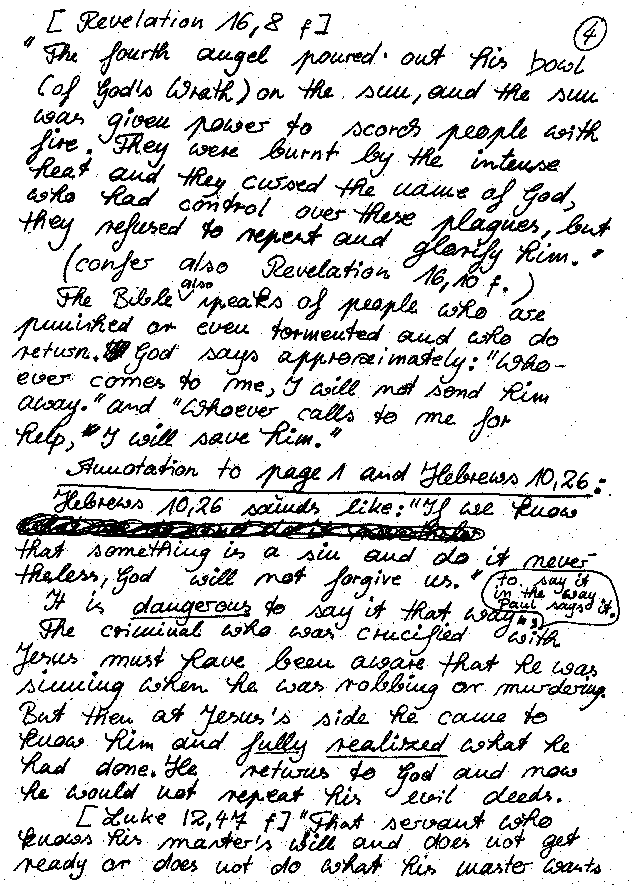 [Revelation 16,8 f]
④
"The fourth angel poured out his bowl
(of God's Wrath) on the sun, and the sun
was given power to scorch people with
fire. They were burnt by the intense
heat and they cursed the name of God,
who had control over these plagues, but
they refused to repent and glorify him."
(confer also Revelation 16,10 f.)
The Bible also speaks of people who are
punished or even tormented and who do
return. God says approximately: "Who-
ever comes to me, I will not send him
away." and "Whoever calls to me for
help, I will save him."
Annotation to page 1 and Hebrews 10,26:
Hebrews 10,26 sounds like: "If we know
that something is a sin and do it never
theless, God will not forgive us."
to say it
in the way
Paul says it.
It is dangerous to say it that way
The criminal who was crucified with
Jesus must have been aware that he was
sinning when he was robbing or murdering.
But then at Jesus's side he came to
know him and fully realized what he
had done. He returns to God and now
he would not repeat his evil deeds.
[Luke 12,47 f] "That servant who
knows his master's will and does not get
ready or does not do what his master wants